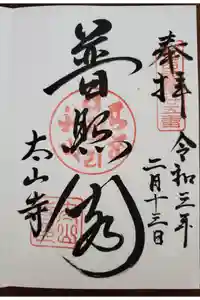 奉拝
令和三年
二月十三日
普照
太山寺